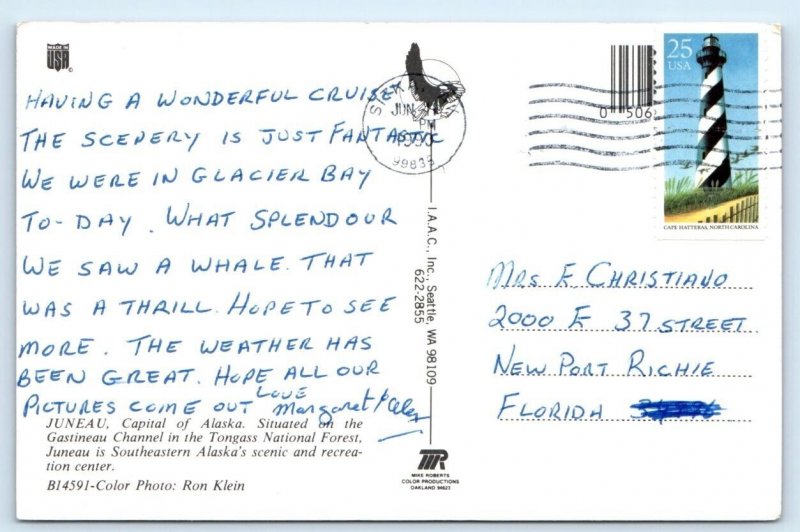 MADE IN
USA
HAVING A WONDERFUL CRUISE
THE SCENERY IS JUST FANTASTIC
WE WERE IN GLACIER BAY
TO-DAY. WHAT SPLENDOUR
WE SAW A WHALE. THAT
WAS A THRILL. HOPE TO SEE
MORE. THE WEATHER HAS
BEEN GREAT. HOPE ALL OUR
PICTURES COME OUT LOVE
Margaret & Alex
JUNEAU, Capital of Alaska. Situated on the
Gastineau Channel in the Tongass National Forest,
Juneau is Southeastern Alaska's scenic and recrea-
tion center.
B14591-Color Photo: Ron Klein
JUN
PM
1990
99835
I.A.A.C., Inc., Seattle, WA 98109
622-2855
MR
MIKE ROBERTS
COLOR PRODUCTIONS
OAKLAND 94623
0 506
25
USA
CAPE HATTERAS, NORTH CAROLINA
MRS E CHRISTIANO
2000 E 37 STREET
NEW PORT RICHIE
FLORIDA